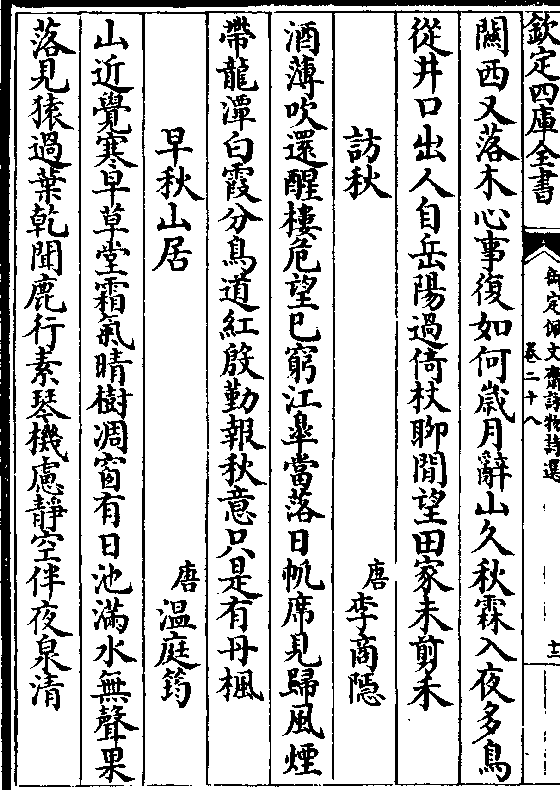 欽定四庫全書
御定佩文齋詠物詩選
卷二十八
十二
關西又落木心事復如何歲月辭山久秋霖入夜多鳥
從井口出人自岳陽過倚杖聊閒望田家未剪禾
訪秋
唐 李商隱
酒薄吹還醒樓危望已窮江臯當落日帆席見歸風煙
帶龍潭白霞分鳥道紅殷勤報秋意只是有丹楓
早秋山居
唐 温庭筠
山近覺寒早草堂霜氣晴樹凋窗有日池滿水無聲果
落見猿過葉乾聞鹿行素琴機慮靜空伴夜泉清